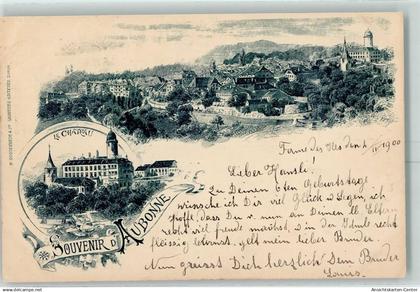 LE CHATEAU
SOUVENIR D'AUBONNE
Ferme des Bois den 1/IV 1900
Lieber Hansli!
Zu Deinem 6ten Geburtstage
wünsche ich Dir viel Glück & Segen, ich
hoffe, dass Du v. nun an Deinen lb. Eltern
recht viel Freude machst, & in der Schule recht
fleissig lernst. gelt mein lieber Bruder.
Nun grüsst Dich herzlich Dein Bruder
Louis.
www.Ansichtskarten-Center.de